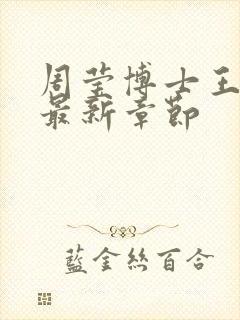 周莹博士王
最新章节
藍金絲百合